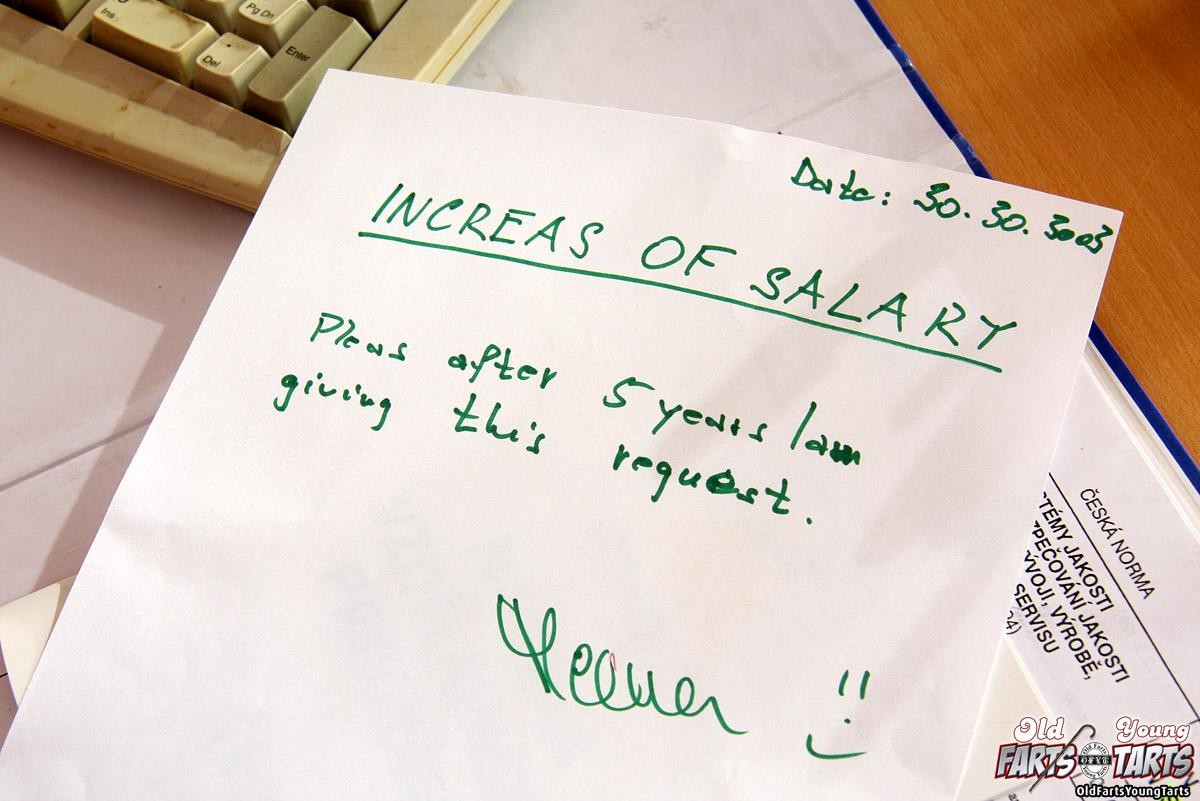 Ins
Pg Dn
Del
Enter
Date: 30.30.3003
INCREAS OF SALARY
Pleas after 5 years I am
giving this request.
!!
ČESKÁ NORMA
TÉMY JAKOSTI
PEČOVÁNÍ JAKOSTI
ÝVOJI, VÝROBĚ,
SERVISU
Old Young
FARTS TARTS
OldFartsYoungTarts